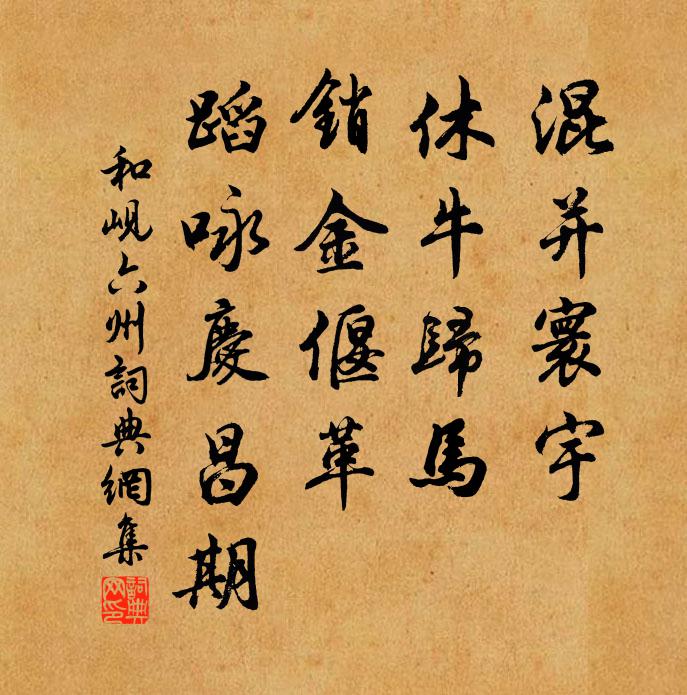 混并寰宇
休牛歸馬
銷金偃革
蹈咏慶昌期
和峴六州詞典網集
詞典網印